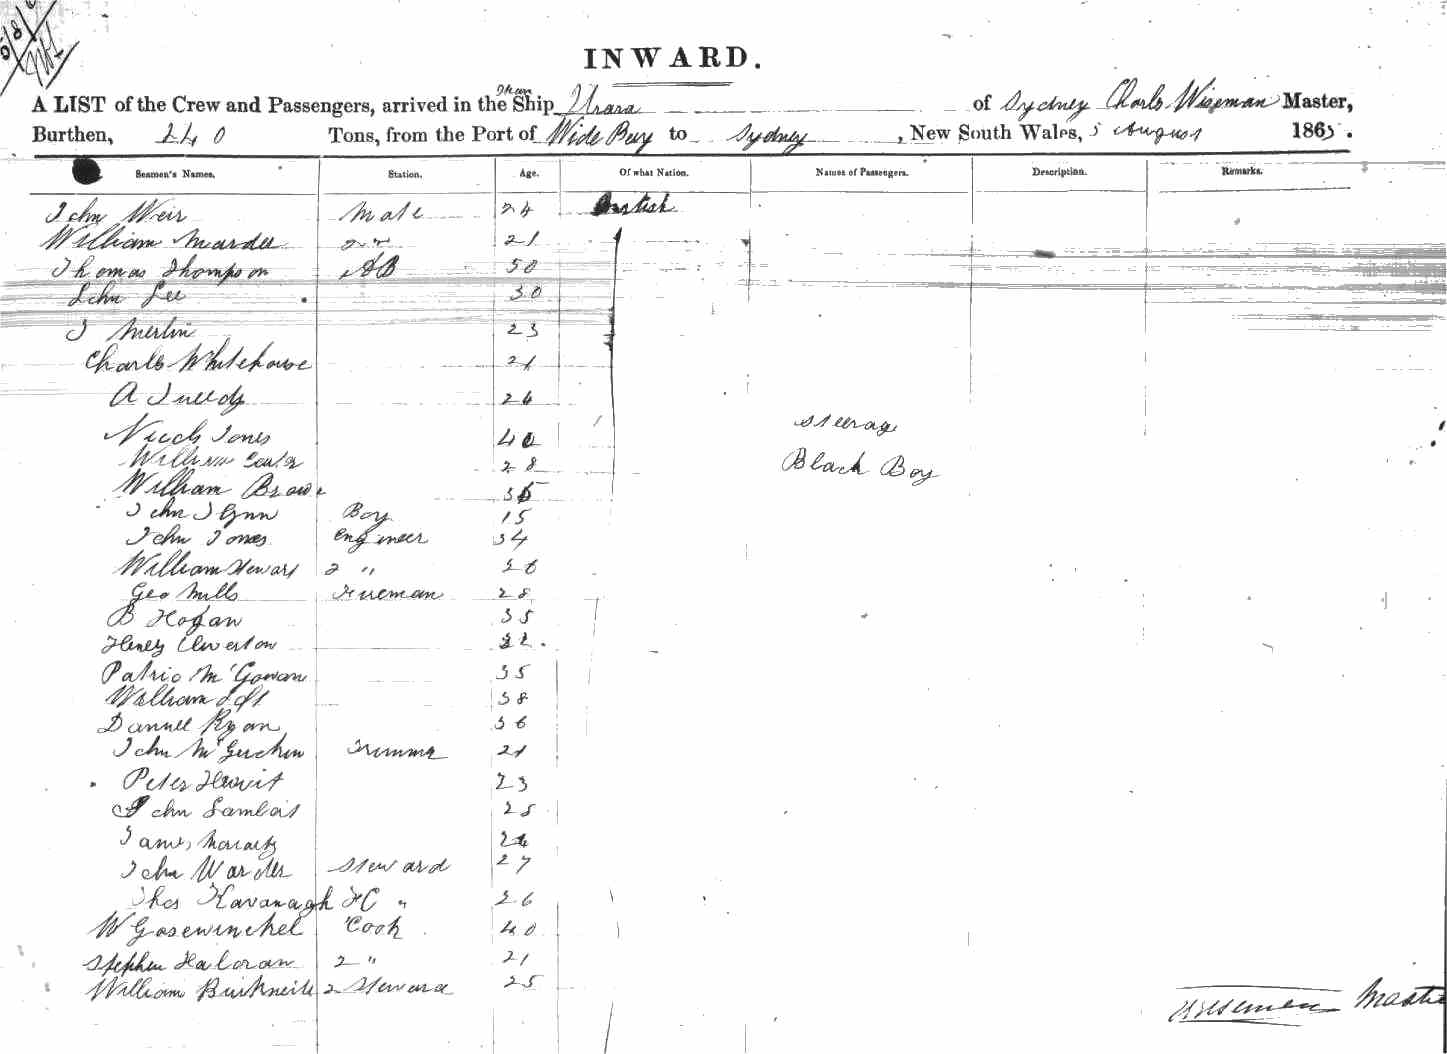 INWARD.
A LIST of the Crew and Passengers, arrived in the Ship Urara of Sydney Charls Wiseman Master,
Burthen, 240 Tons, from the Port of Wide Bay to Sydney, New South Wales, 5 August 1865.
Seamen's Names. Station. Age. Of what Nation. Names of Passengers. Description. Remarks.
John Weir Mate 24 British
William 21
Thomas Thompson AB 50
John Lee 30
J Merlin 23
Charls Whitehouse 21
A Tweedy 24
Jones 40 Steerage
William 28 Black Boy
William Brown
John Flynn Boy 15
John Jones Engineer 34
William Stewart 2 " 26
Geo Mills Fireman 28
B Hogan 35
Henry 32
Patric McGowan 35
William 38
Daniel Ryan 36
John 21
Peter 23
John 25
James Moriarty
John Warder Steward 27
Thos Kavanagh FC " 26
W Gosewinckel Cook 40
Stephen Haloran 2 " 21
William 2 Steward 25
Wiseman Master